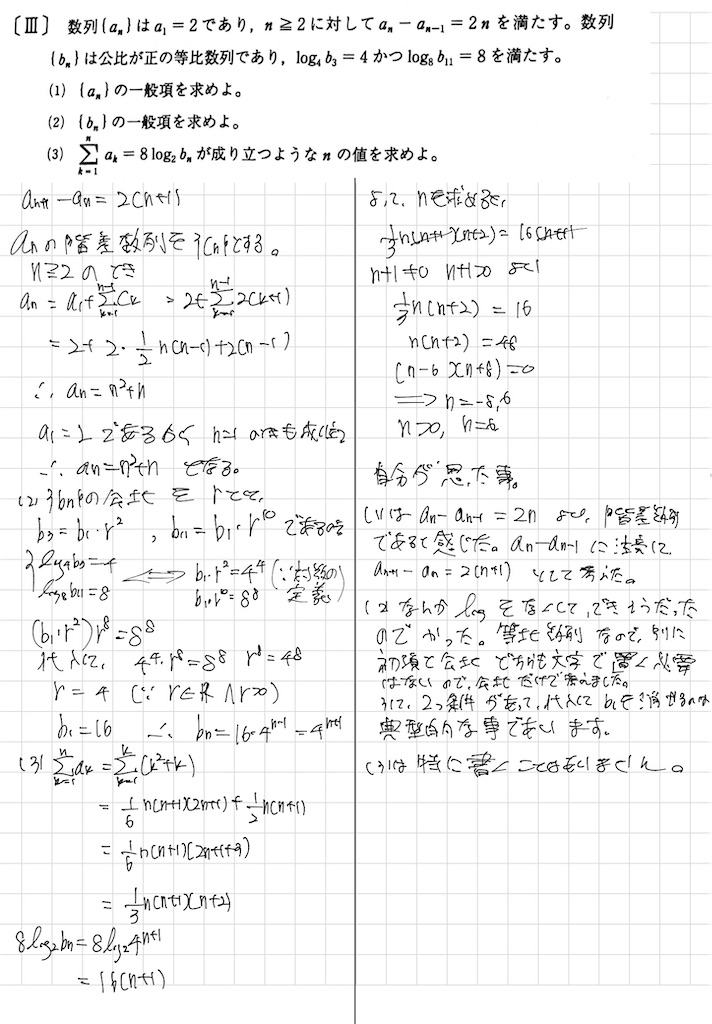 〔Ⅲ〕 数列{aₙ}はa₁＝2であり，n≧2に対してaₙ－aₙ₋₁＝2nを満たす。数列
{bₙ}は公比が正の等比数列であり，log₄b₃＝4かつlog₈b₁₁＝8を満たす。
(1) {aₙ}の一般項を求めよ。
(2) {bₙ}の一般項を求めよ。
(3) Σ[k=1→n] aₖ＝8log₂bₙが成り立つようなnの値を求めよ。
aₙ₊₁－aₙ＝2(n+1)
aₙの階差数列を{Cₙ}とする。
n≧2のとき
aₙ＝a₁+Σ[k=1→n-1]Cₖ ＝2+Σ[k=1→n-1]2(k+1)
＝2+2・1/2 n(n-1)+2(n-1)
∴ aₙ＝n²+n
a₁＝2であるから n=1のときも成り立つ
∴ aₙ＝n²+n である。
(2) {bₙ}の公比をrとして、
b₃＝b₁・r² , b₁₁＝b₁・r¹⁰ であるから
{log₄b₃＝4
log₈b₁₁＝8 ⟺ b₁・r²＝4⁴
b₁・r¹⁰＝8⁸ (∵対数の定義)
(b₁・r²)r⁸＝8⁸
代入して、 4⁴・r⁸＝8⁸ r⁸＝4⁸
r＝4 (∵ r∈R ∧ r>0)
b₁＝16 ∴ bₙ＝16・4ⁿ⁻¹＝4ⁿ⁺¹
(3) Σ[k=1→n]aₖ＝Σ[k=1→k](k²+k)
＝1/6 n(n+1)(2n+1)+1/2 n(n+1)
＝1/6 n(n+1)(2n+1+3)
＝1/3 n(n+1)(n+2)
8log₂bₙ＝8log₂4ⁿ⁺¹
＝16(n+1)
よって、nを求めると、
1/3 n(n+1)(n+2)＝16(n+1)
n+1≠0 n+1>0 より
1/3 n(n+2)＝16
n(n+2)＝48
(n-6)(n+8)＝0
⟹ n＝-8,6
n>0, n=6
自分が思った事。
(1)は aₙ－aₙ₋₁＝2n より、階差数列
であると感じた。aₙ－aₙ₋₁に注意して
aₙ₊₁－aₙ＝2(n+1) として考えた。
(2) なんか log をなくして、できそうだった
のでかった。等比数列なので、別に
初項と公比どちらも文字で置く必要
はないので、公比だけで考えました。
そして、2つ条件があって、代入してb₁を消せるのは
典型的な事であります。
(3)は特に書くことはありません。